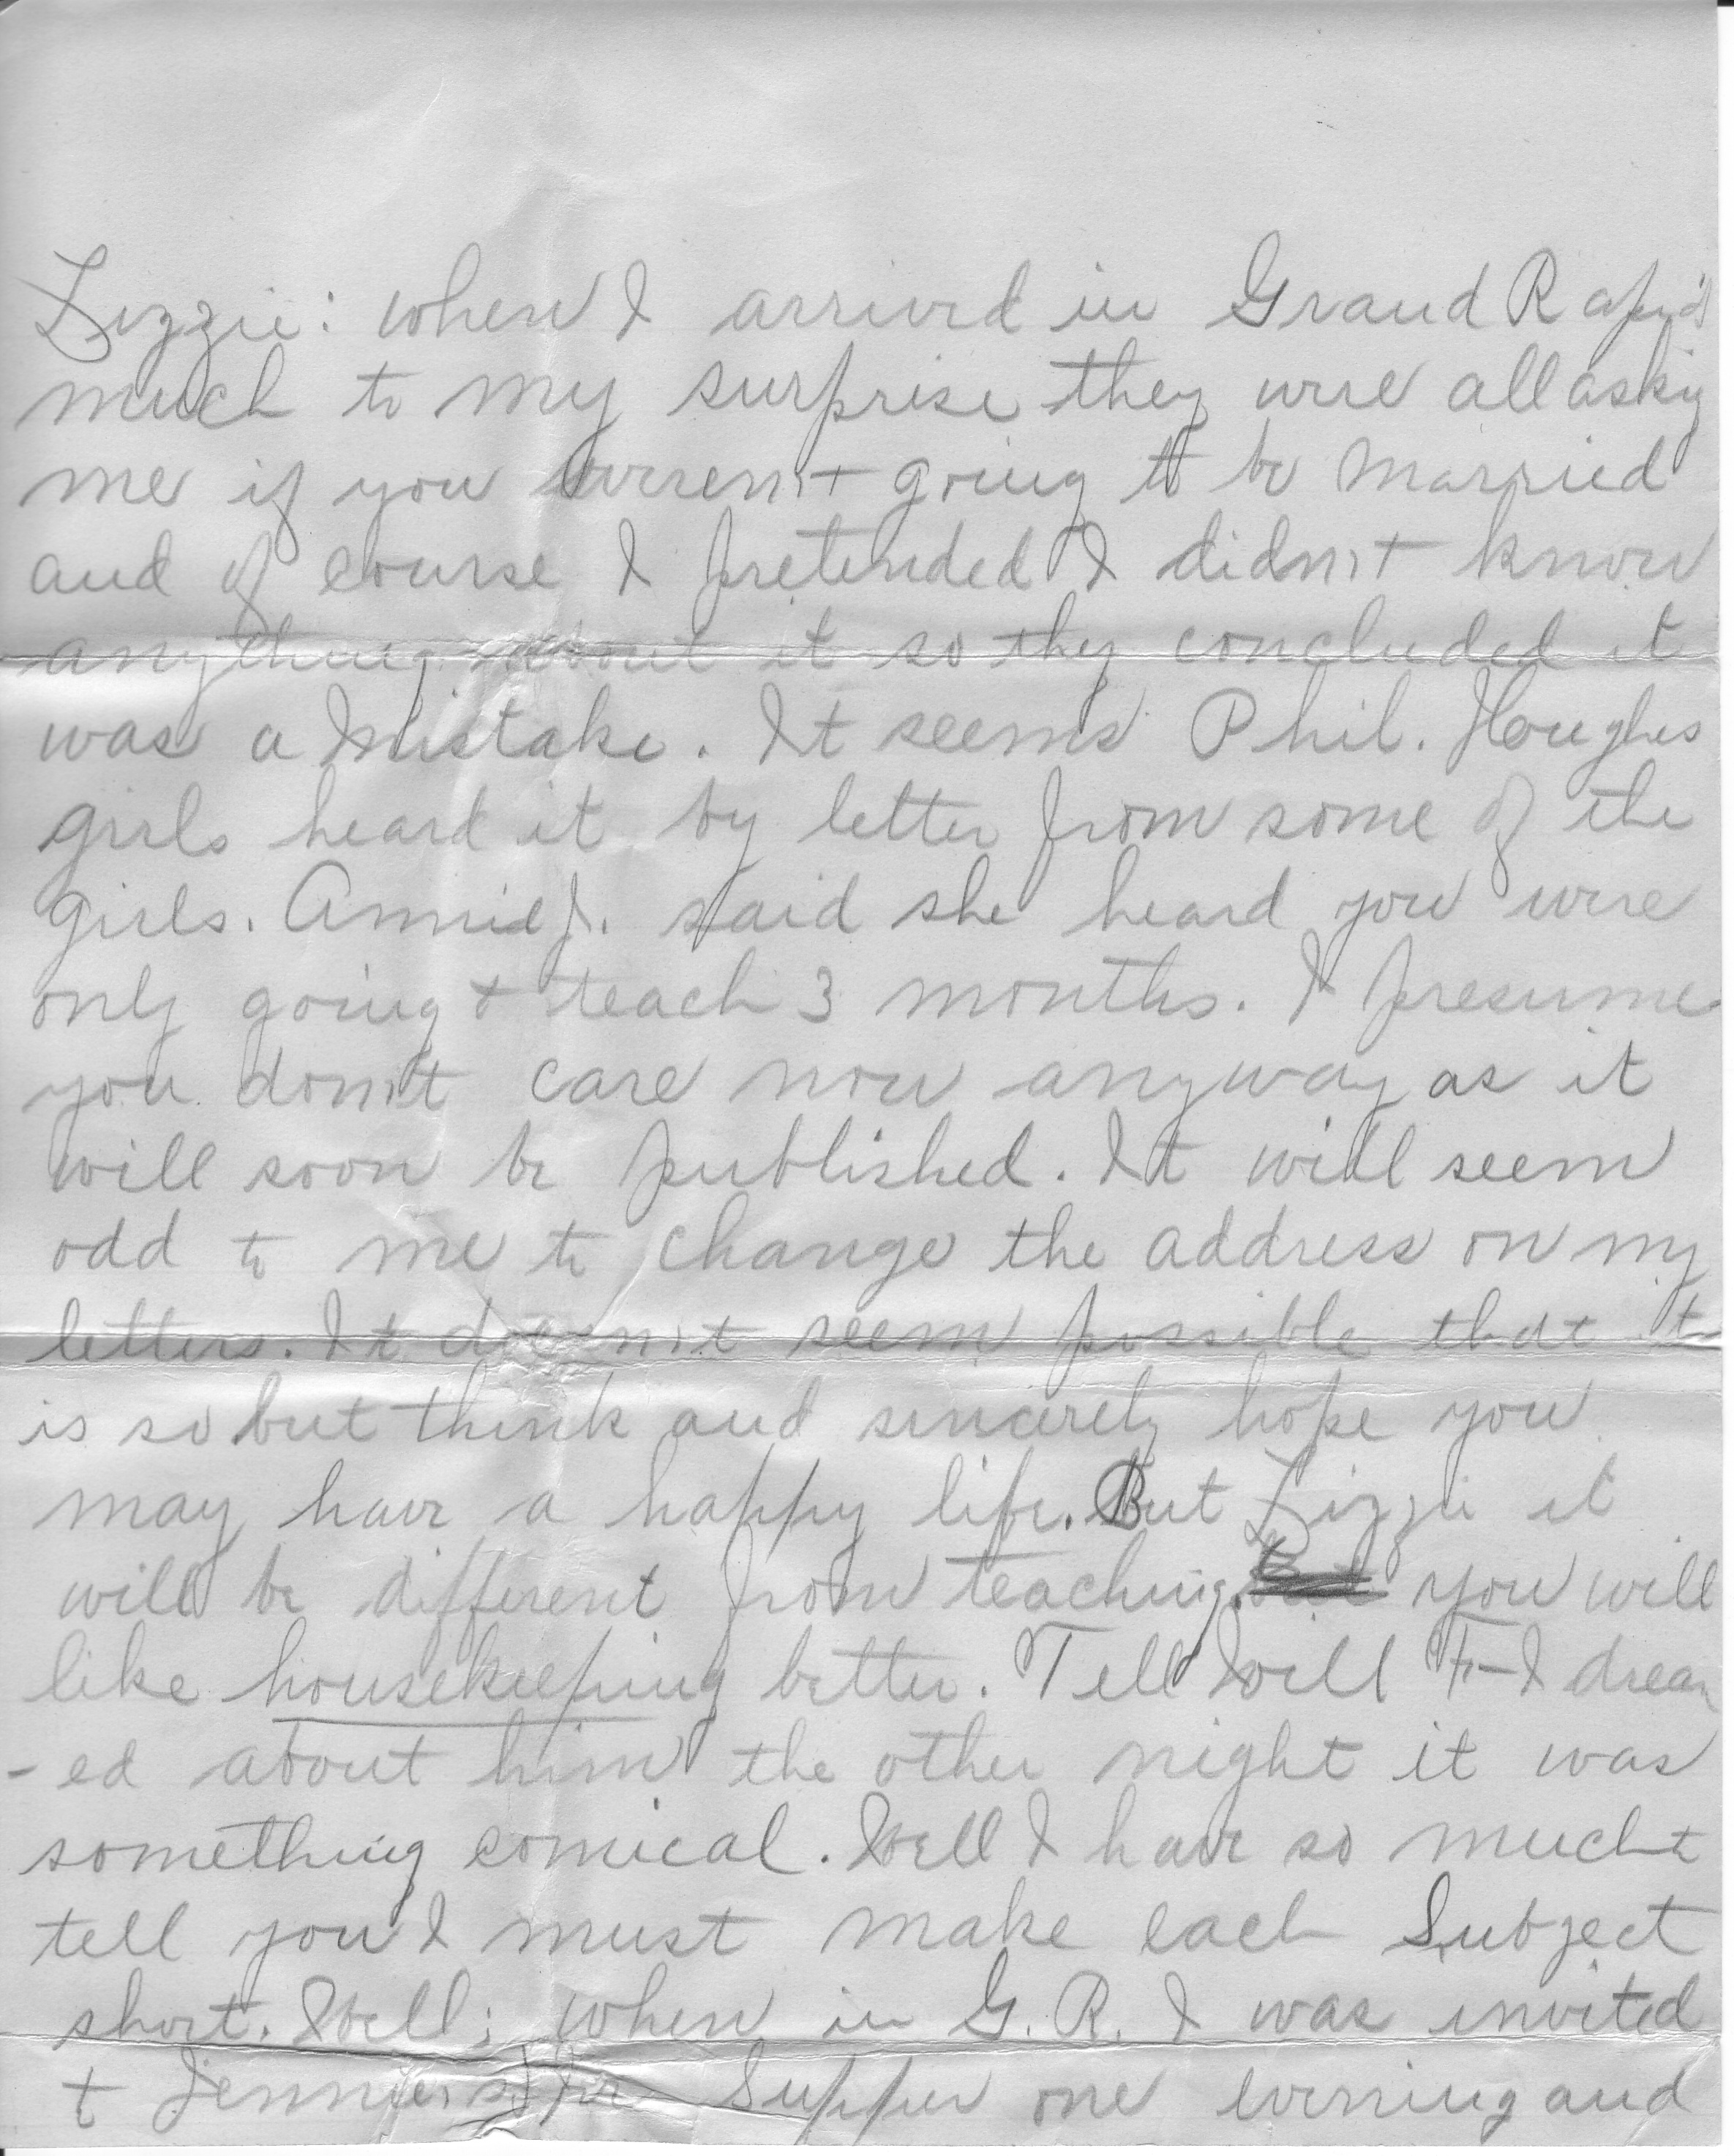 Lizzie: when I arrived in Grand Rapids
much to my surprise they were all asking
me if you weren't going to be married
and of course I pretended I didn't know
anything about it so they concluded it
was a mistake. It seems Phil. Houghes
girls heard it by letter from some of the
girls. Annie J. said she heard you were
only going t teach 3 months. I presume
you don't care now anyway as it
will soon be published. It will seem
odd to me to change the address on my
letters. It doesn't seem possible that it
is so but think and sincerely hope you
may have a happy life. But Lizzie it
will be different from teaching. you will
like housekeeping better. Tell Will F- I dream
-ed about him the other night it was
something comical. Well I have so much t
tell you I must make each Subject
short. Well; when in G. R. I was invited
t Jennie's for Supper one evening and